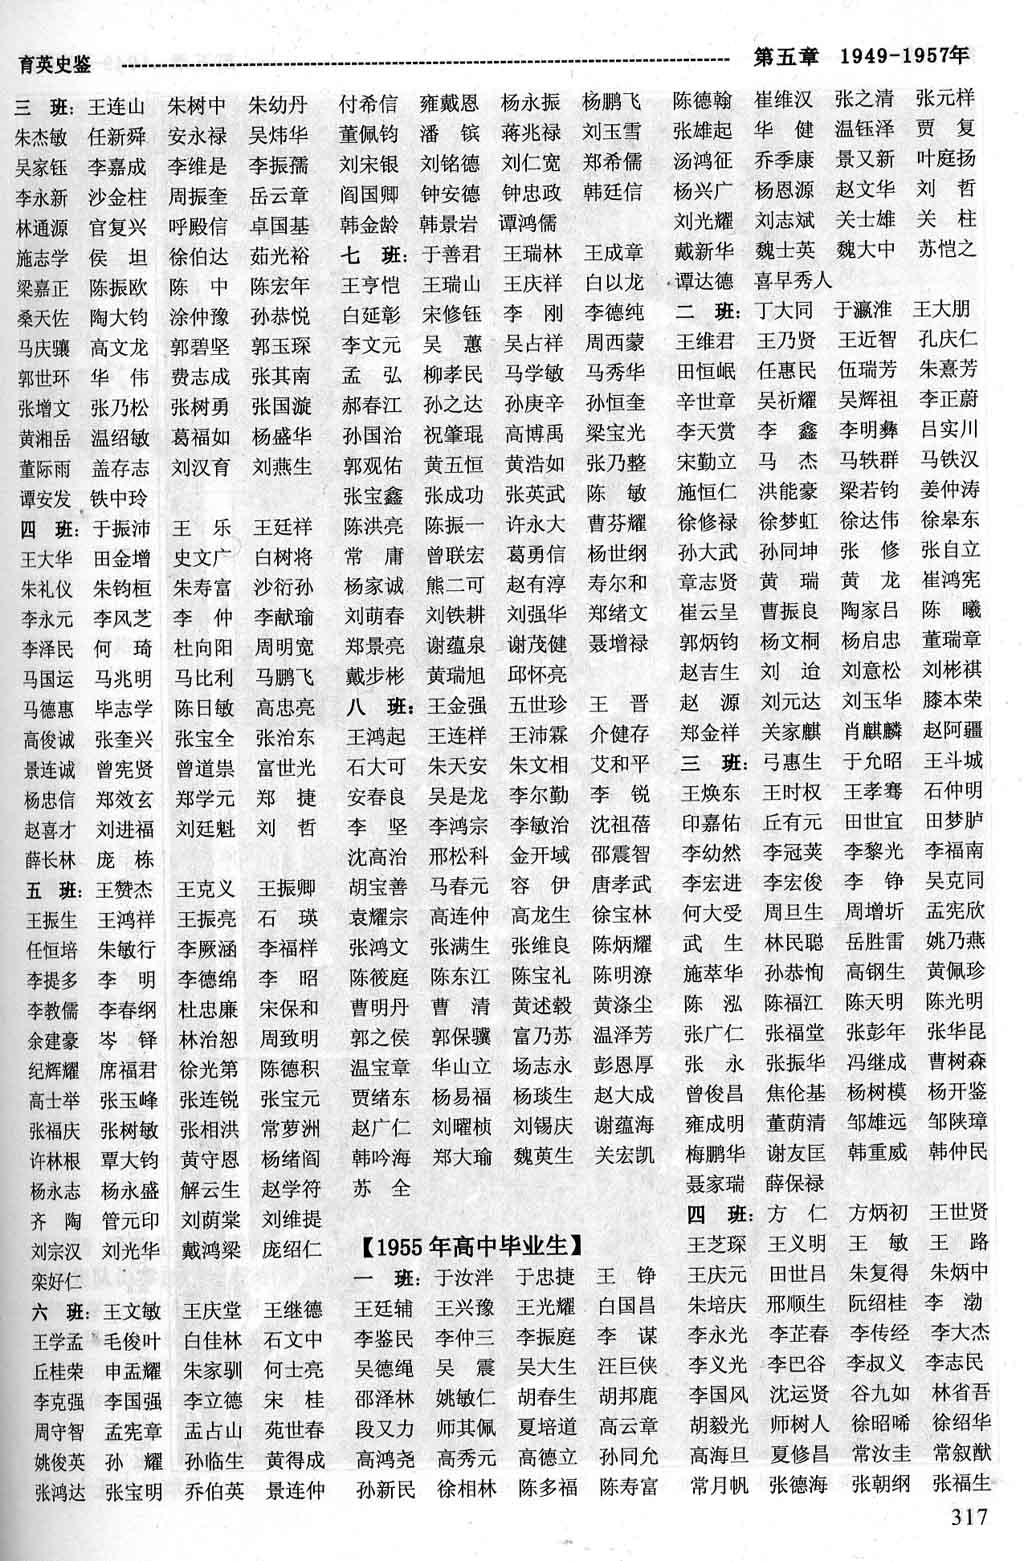 育英史鉴
第五章 1949-1957年
三 班：王连山 朱树中 朱幼丹
朱杰敏 任新舜 安永禄 吴炜华
吴家钰 李嘉成 李维是 李振孺
李永新 沙金柱 周振奎 岳云章
林通源 官复兴 呼殿信 卓国基
施志学 侯 坦 徐伯达 茹光裕
梁嘉正 陈振欧 陈 中 陈宏年
桑天佐 陶大钧 涂仲豫 孙恭悦
马庆骧 高文龙 郭碧坚 郭玉琛
郭世环 华 伟 费志成 张其南
张增文 张乃松 张树勇 张国漩
黄湘岳 温绍敏 葛福如 杨盛华
董际雨 盖存志 刘汉育 刘燕生
谭安发 铁中玲
四 班：于振沛 王 乐 王廷祥
王大华 田金增 史文广 白树将
朱礼仪 朱钧桓 朱寿富 沙衍孙
李永元 李风芝 李 仲 李献瑜
李泽民 何 琦 杜向阳 周明宽
马国运 马兆明 马比利 马鹏飞
马德惠 毕志学 陈日敏 高忠亮
高俊诚 张奎兴 张宝全 张治东
景连诚 曾宪贤 曾道祟 富世光
杨忠信 郑效玄 郑学元 郑 捷
赵喜才 刘进福 刘廷魁 刘 哲
薛长林 庞 栋
五 班：王赞杰 王克义 王振卿
王振生 王鸿祥 王振亮 石 瑛
任恒培 朱敏行 李厥涵 李福样
李提多 李 明 李德绵 李 昭
李教儒 李春纲 杜忠廉 宋保和
余建豪 岑 铎 林治恕 周致明
纪辉耀 席福君 徐光第 陈德积
高士举 张玉峰 张连锐 张宝元
张福庆 张树敏 张相洪 常萝洲
许林根 覃大钧 黄守恩 杨绪阎
杨永志 杨永盛 解云生 赵学符
齐 陶 管元印 刘荫棠 刘维提
刘宗汉 刘光华 戴鸿梁 庞绍仁
栾好仁
六 班：王文敏 王庆堂 王继德
王学孟 毛俊叶 白佳林 石文中
丘桂荣 申孟耀 朱家驯 何士亮
李克强 李国强 李立德 宋 桂
周守智 孟宪章 孟占山 苑世春
姚俊英 孙 耀 孙临生 黄得成
张鸿达 张宝明 乔伯英 景连仲
付希信 雍戴恩 杨永振 杨鹏飞
董佩钧 潘 镔 蒋兆禄 刘玉雪
刘宋银 刘铭德 刘仁宽 郑希儒
阎国卿 钟安德 钟忠政 韩廷信
韩金龄 韩景岩 谭鸿儒
七 班：于善君 王瑞林 王成章
王亨恺 王瑞山 王庆祥 白以龙
白延彰 宋修钰 李 刚 李德纯
李文元 吴 蕙 吴占祥 周西蒙
孟 弘 柳孝民 马学敏 马秀华
郝春江 孙之达 孙庚辛 孙恒奎
孙国治 祝肇琨 高博禹 梁宝光
郭观佑 黄五恒 黄浩如 张乃整
张宝鑫 张成功 张英武 陈 敏
陈洪亮 陈振一 许永大 曹芬耀
常 庸 曾联宏 葛勇信 杨世纲
杨家诚 熊二可 赵有淳 寿尔和
刘萌春 刘铁耕 刘强华 郑绪文
郑景亮 谢蕴泉 谢茂健 聂增禄
戴步彬 黄瑞旭 邱怀亮
八 班：王金强 五世珍 王 晋
王鸿起 王连样 王沛霖 介健存
石大可 朱天安 朱文相 艾和平
安春良 吴是龙 李尔勤 李 锐
李 坚 李鸿宗 李敏治 沈祖蓓
沈高治 邢松科 金开域 邵震智
胡宝善 马春元 容 伊 唐孝武
袁耀宗 高连仲 高龙生 徐宝林
张鸿文 张满生 张维良 陈炳耀
陈筱庭 陈东江 陈宝礼 陈明潦
曹明丹 曹 清 黄述毅 黄涤尘
郭之侯 郭保骥 富乃苏 温泽芳
温宝章 华山立 场志永 彭恩厚
贾绪东 杨易福 杨琰生 赵大成
赵广仁 刘曜桢 刘锡庆 谢蕴海
韩吟海 郑大瑜 魏萸生 关宏凯
苏 全
【1955年高中毕业生】
一 班：于汝泮 于忠捷 王 铮
王廷辅 王兴豫 王光耀 白国昌
李鉴民 李仲三 李振庭 李 谋
吴德绳 吴 震 吴大生 汪巨侠
邵泽林 姚敏仁 胡春生 胡邦鹿
段又力 师其佩 夏培道 高云章
高鸿尧 高秀元 高德立 孙同允
孙新民 徐相林 陈多福 陈寿富
陈德翰 崔维汉 张之清 张元样
张雄起 华 健 温钰泽 贾 复
汤鸿征 乔季康 景又新 叶庭扬
杨兴广 杨恩源 赵文华 刘 哲
刘光耀 刘志斌 关士雄 关 柱
戴新华 魏士英 魏大中 苏恺之
谭达德 喜早秀人
二 班：丁大同 于瀛淮 王大朋
王维君 王乃贤 王近智 孔庆仁
田恒岷 任惠民 伍瑞芳 朱熹芳
辛世章 吴祈耀 吴辉祖 李正蔚
李天赏 李 鑫 李明彝 吕实川
宋勤立 马 杰 马轶群 马铁汉
施恒仁 洪能豪 梁若钧 姜仲涛
徐修禄 徐梦虹 徐达伟 徐皋东
孙大武 孙同坤 张 修 张自立
章志贤 黄 瑞 黄 龙 崔鸿宪
崔云呈 曹振良 陶家吕 陈 曦
郭炳钧 杨文桐 杨启忠 董瑞章
赵吉生 刘 迨 刘意松 刘彬祺
赵 源 刘元达 刘玉华 膝本荣
郑金祥 关家麒 肖麒麟 赵阿疆
三 班：弓惠生 于允昭 王斗城
王焕东 王时权 王孝骞 石仲明
印嘉佑 丘有元 田世宜 田梦胪
李幼然 李冠荚 李黎光 李福南
李宏进 李宏俊 李 铮 吴克同
何大受 周旦生 周增圻 孟宪欣
武 生 林民聪 岳胜雷 姚乃燕
施萃华 孙恭恂 高钢生 黄佩珍
陈 泓 陈福江 陈天明 陈光明
张广仁 张福堂 张彭年 张华昆
张 永 张振华 冯继成 曹树森
曾俊昌 焦伦基 杨树模 杨开鉴
雍成明 董荫清 邹雄远 邹陕璋
梅鹏华 谢友匡 韩重威 韩仲民
聂家瑞 薛保禄
四 班：方 仁 方炳初 王世贤
王芝琛 王义明 王 敏 王 路
王庆元 田世吕 朱复得 朱炳中
朱培庆 邢顺生 阮绍桂 李 渤
李永光 李芷春 李传经 李大杰
李义光 李巴谷 李叔义 李志民
李国风 沈运贤 谷九如 林省吾
胡毅光 师树人 徐昭唏 徐绍华
高海旦 夏修昌 常汝圭 常叙猷
常月帆 张德海 张朝纲 张福生
317